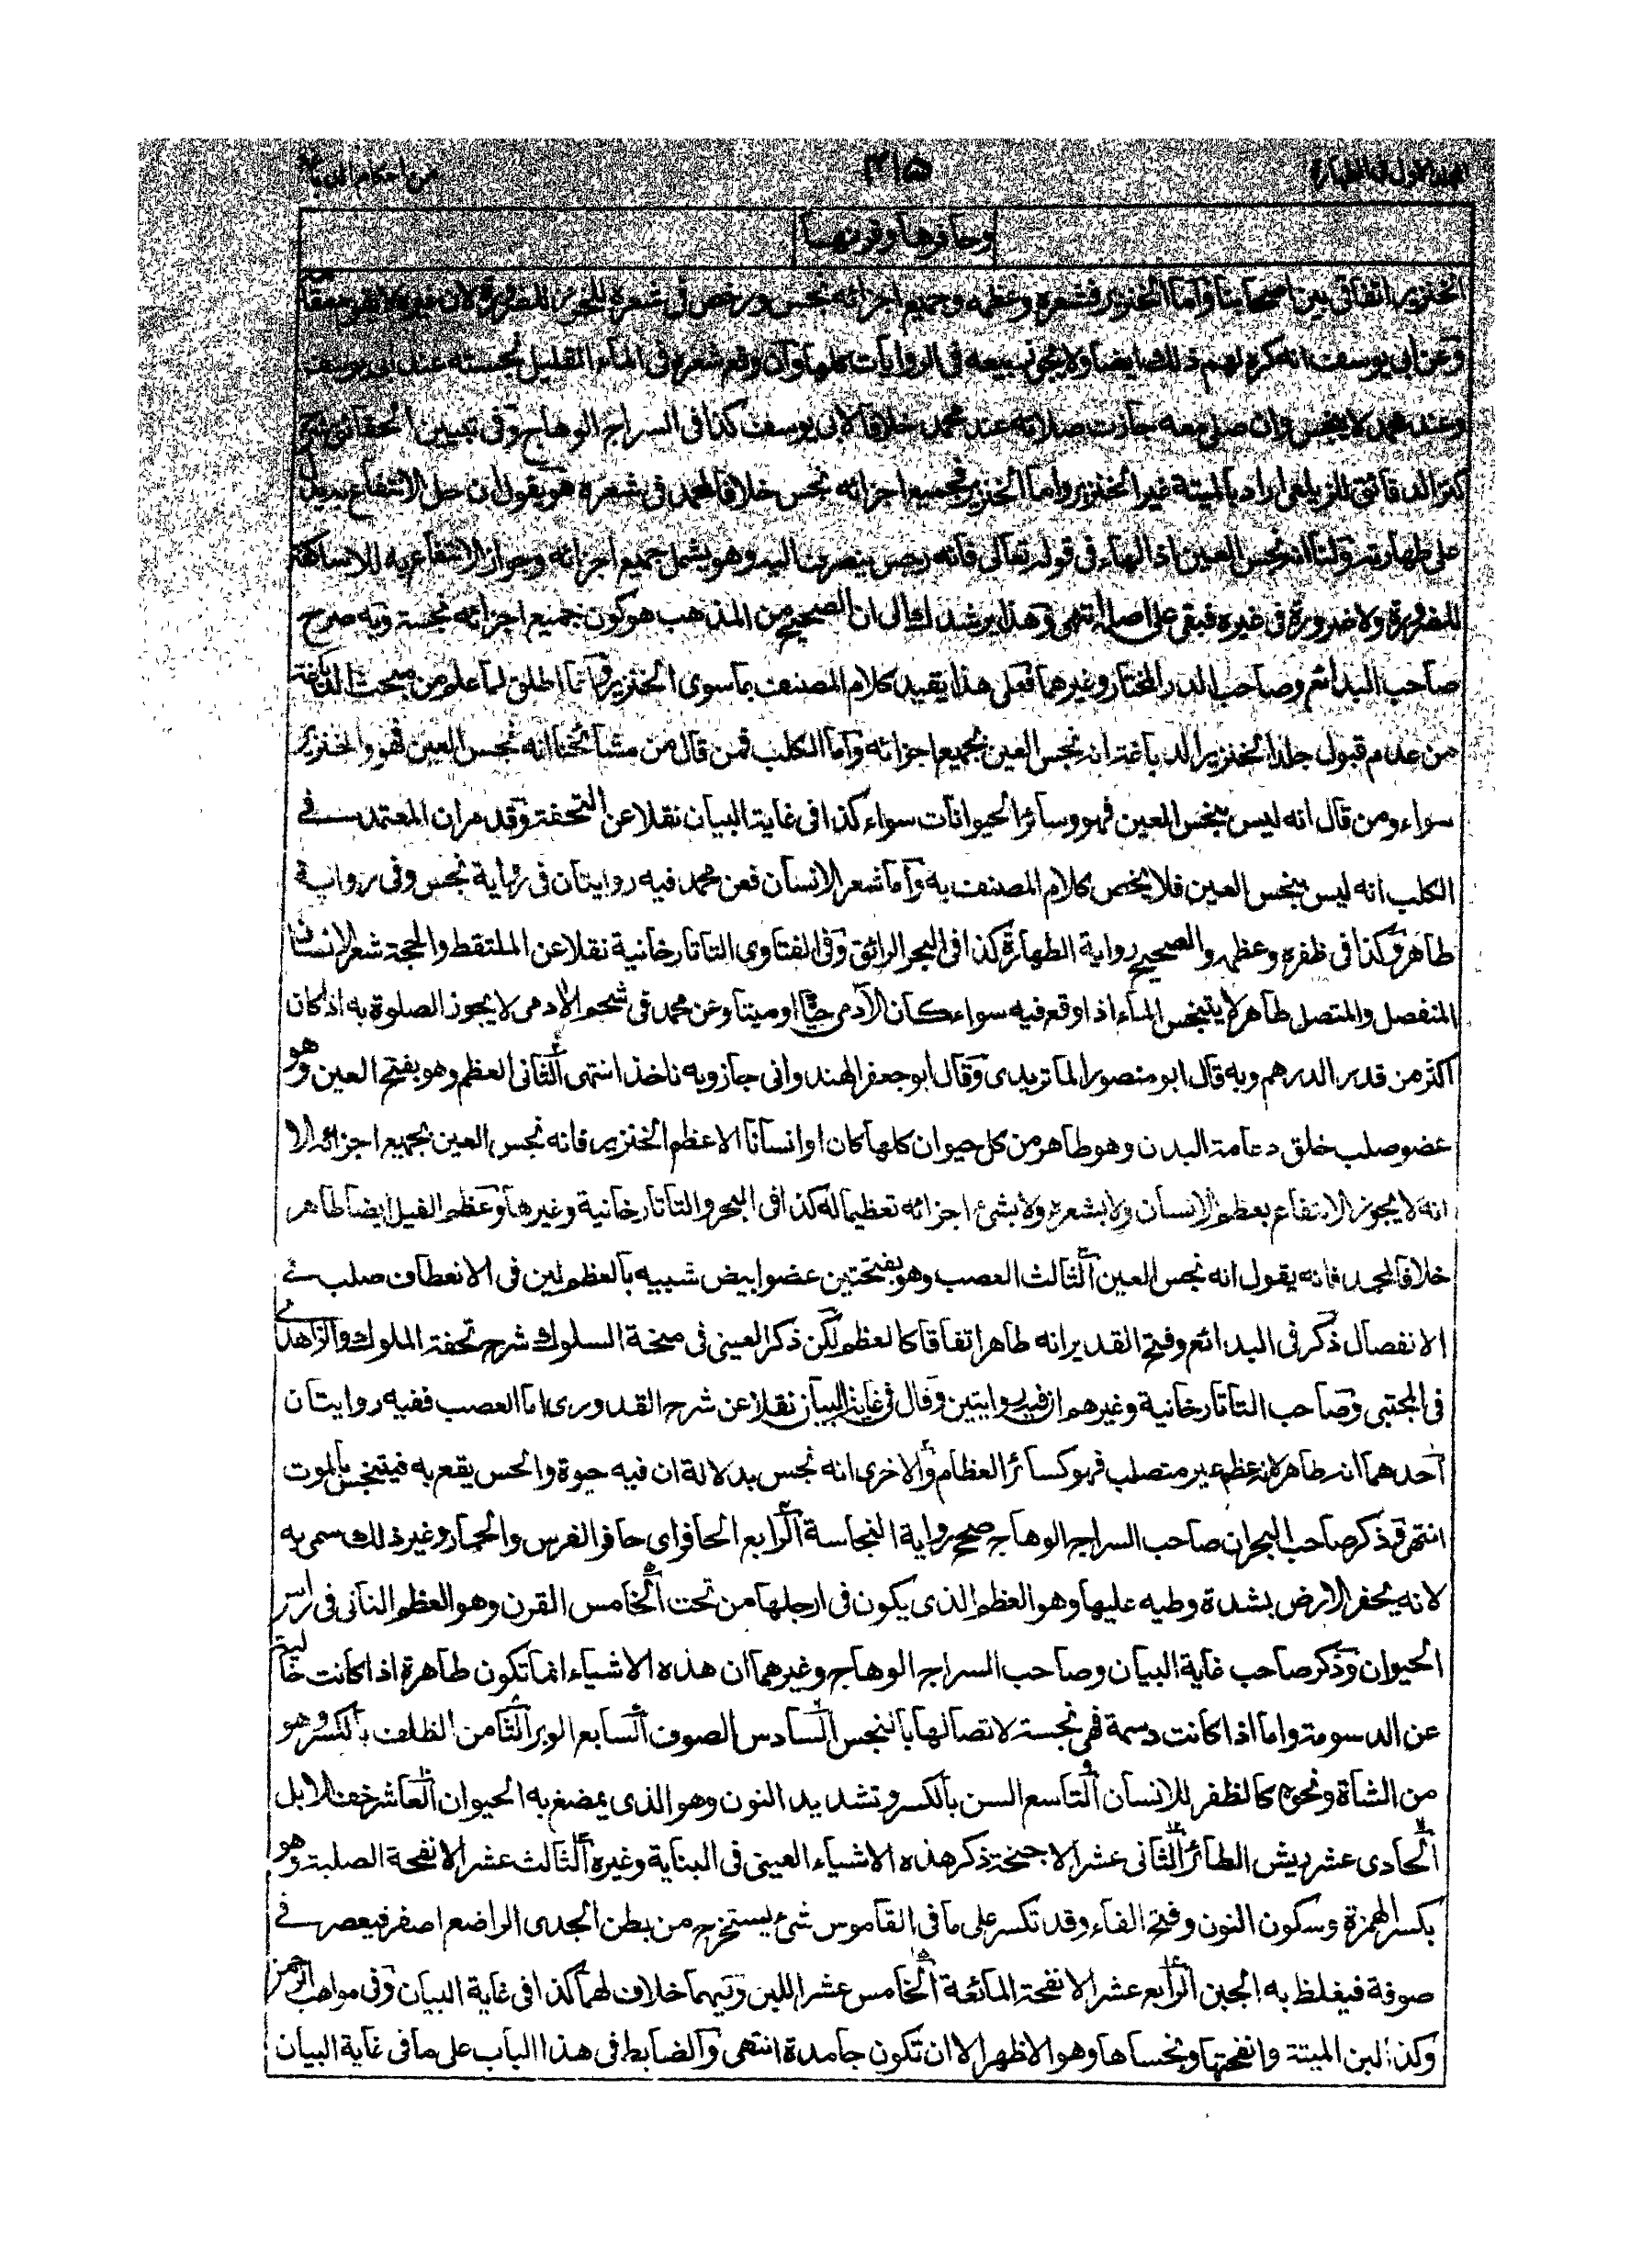 المجلد الاول في الطهارة ٤١٥ من احكام الدباغة
وحافرها وقرنها
الخنزير اتفاقي بين اصحابنا وأما الخنزير فشعره وعظمه وجميع اجزائه نجس ورخص في شعره للخرز للضرورة لان غيره لا يقوم مقامه
وعن ابي يوسف انه كره لهم ذلك ايضا ولا يجوز بيعه في الروايات كلها وان وقع شعره في الماء القليل نجسته عند ابي يوسف
وعند محمد لا ينجس وان صلى معه جازت صلاته عند محمد خلافا لابي يوسف كذا في السراج الوهاج وفي تبيين الحقائق شرح
كنز الدقائق للزيلعي اراد بالميتة غير الخنزير واما الخنزير فجميع اجزائه نجس خلافا لمحمد في شعره هو يقول ان حل الانتفاع يدل
على طهارته ولنا انه نجس العين اذ الهاء في قوله تعالى فانه رجس ينصرف اليه وهو يشمل جميع اجزائه وجواز الانتفاع به للاساكفة
للضرورة ولا ضرورة في غيره فبقي على اصله انتهى وهذا يرشدك الى ان الصحيح من المذهب هو كون جميع اجزائه نجسة وبه صرح
صاحب البدائع وصاحب الدر المختار وغيرهما فعلى هذا يقيد كلام المصنف بما سوى الخنزير وانما اطلق لما علم من مبحث الدباغة
من عدم قبول جلد الخنزير الدباغة انه نجس العين بجميع اجزائه وأما الكلب فمن قال من مشائخنا انه نجس العين فهو والخنزير
سواء ومن قال انه ليس بنجس العين فهو وسائر الحيوانات سواء كذا في غاية البيان نقلا عن التحفة وقد مر ان المعتمد في
الكلب انه ليس بنجس العين فلا يخص كلام المصنف به وأما شعر الانسان فعن محمد فيه روايتان في رواية نجس وفي رواية
طاهر وكذا في ظفره وعظمه والصحيح رواية الطهارة كذا في البحر الرائق وفي الفتاوى التاتارخانية نقلا عن الملتقط والحجة شعر الانسان
المنفصل والمتصل طاهر لا يتنجس الماء اذا وقع فيه سواء كان الآدمي حيا او ميتا وعن محمد في شحم الآدمي لا يجوز الصلوة به اذا كان
اكثر من قدر الدرهم وبه قال ابو منصور الماتريدي وقال ابو جعفر الهندواني جاز وبه ناخذ انتهى الثاني العظم وهو بفتح العين وهو
عضو صلب خلق دعامة البدن وهو طاهر من كل حيوان كلها كان او انسانا الا عظم الخنزير فانه نجس العين بجميع اجزائه الا
انه لا يجوز الانتفاع بعظم الانسان ولا بشعره ولا بشئ اجزائه تعظيما له كذا في البحر والتاتارخانية وغيرها وعظم الفيل ايضا طاهر
خلافا لمحمد فانه يقول انه نجس العين الثالث العصب وهو بفتحتين عضو ابيض شبيه بالعظم لين في الانعطاف صلب في
الانفصال ذكر في البدائع وفتح القدير انه طاهر اتفاقا كالعظم لكن ذكر العيني في منحة السلوك شرح تحفة الملوك والزاهدي
في المجتبى وصاحب التاتارخانية وغيرهم ان فيه روايتين وقال في غاية البيان نقلا عن شرح القدوري اما العصب ففيه روايتان
احدهما انه طاهر لانه عظم غير متصلب فهو كسائر العظام والاخرى انه نجس بدلالة ان فيه حيوة والحس يقع به فيتنجس بالموت
انتهى وذكر صاحب البحر ان صاحب السراج الوهاج صحح رواية النجاسة الرابع الحافر اي حافر الفرس والحمار وغير ذلك سمي به
لانه يحفر الارض بشدة وطيه عليها وهو العظم الذي يكون في ارجلها من تحت الخامس القرن وهو العظم الناتي في راس
الحيوان وذكر صاحب غاية البيان وصاحب السراج الوهاج وغيرهما ان هذه الاشياء انما تكون طاهرة اذا كانت خالية
عن الدسومة واما اذا كانت دسمة فهي نجسة لاتصالها بالنجس السادس الصوف السابع الوبر الثامن الظلف بالكسر وهو
من الشاة ونحوها كالظفر للانسان التاسع السن بالكسر وتشديد النون وهو الذي يمضغ به الحيوان العاشر خف الابل
الحادي عشر ريش الطائر الثاني عشر الاجنحة ذكر هذه الاشياء العيني في البناية وغيره الثالث عشر الانفحة الصلبة وهو
بكسر الهمزة وسكون النون وفتح الفاء وقد تكسر على ما في القاموس شئ يستخرج من بطن الجدي الراضع اصفر فيعصر في
صوفة فيغلظ به الجبن الرابع عشر الانفحة المائعة الخامس عشر اللبن وفيهما خلاف لهما كذا في غاية البيان وفي مواهب الرحمن
وكذا لبن الميتة وانفحتها ونجساها وهو الاظهر الا ان تكون جامدة انتهى والضابط في هذا الباب على ما في غاية البيان